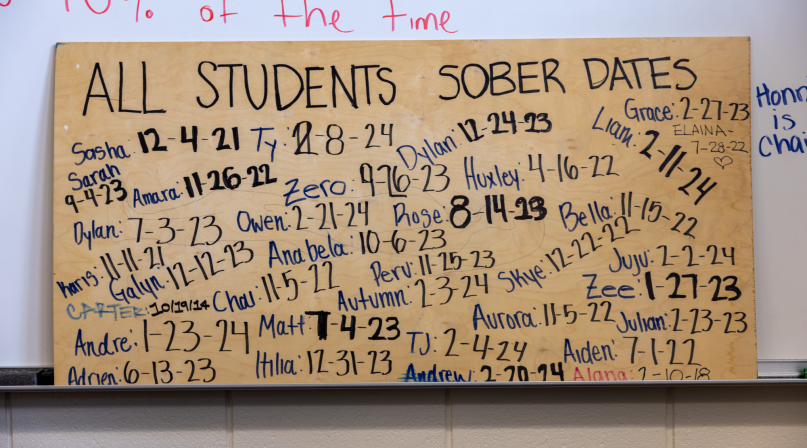 10% of the time
ALL STUDENTS SOBER DATES
Grace: 2-27-23
Honn
is
Cha
ELAINA-
7-28-22
Liam: 2-11-24
Sasha: 12-4-21
Ty: 2-8-24
Dylan: 12-24-23
Sarah
9-4-23
Amara: 11-26-22
Zero: 9-16-23
Huxley: 4-16-22
Dylan: 7-3-23
Owen: 2-21-24
Rose: 8-14-23
Bella: 11-15-22
Karis: 11-11-21
Galyn: 12-12-23
Anabela: 10-6-23
Peru: 11-25-23
Skye: 12-22-22
Juju: 2-2-24
CARTER: 10/19/14
Chau: 11-5-22
Autumn: 2-3-24
Zee: 1-27-23
Andre: 1-23-24
Matt: 7-4-23
Aurora: 11-5-22
Julian: 2-23-23
TJ: 2-4-24
Aiden: 7-1-22
Adrien: 6-13-23
12-31-23
Andrew: 2-20-24
Alana: 2-10-18